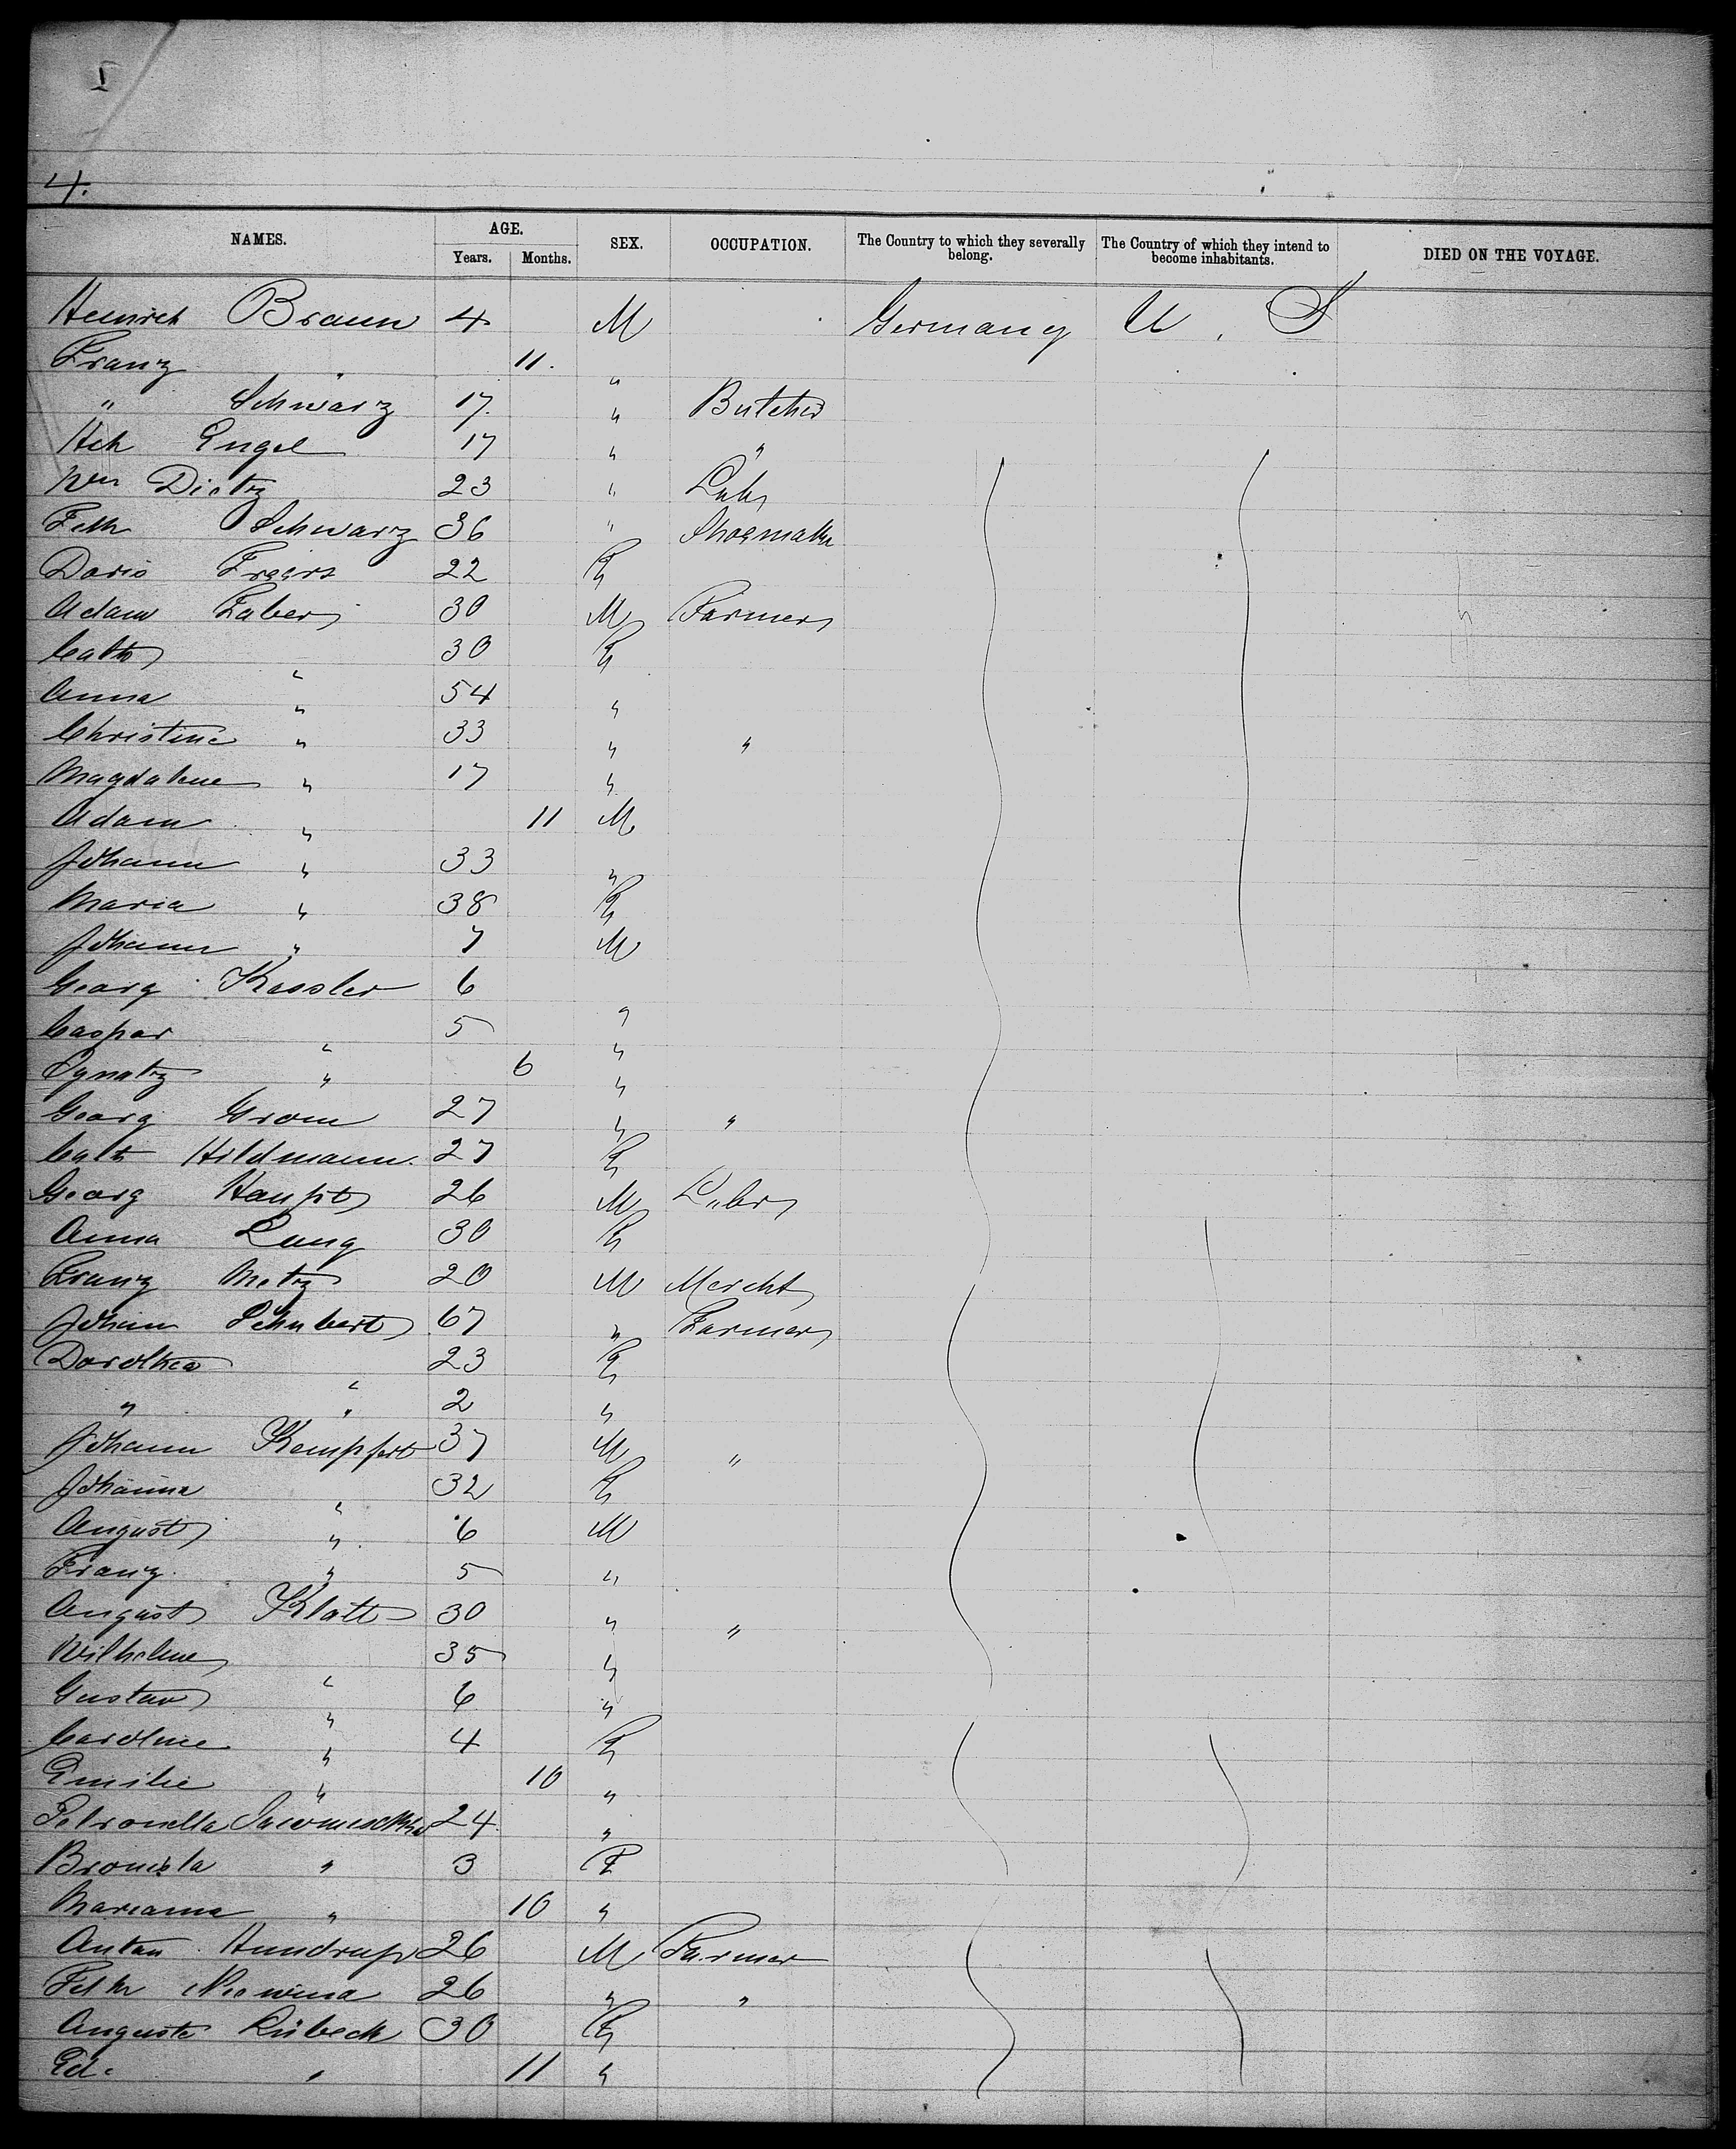 4.
NAMES. AGE. SEX. OCCUPATION. The Country to which they severally belong. The Country of which they intend to become inhabitants. DIED ON THE VOYAGE.
Years. Months.
Heinrich Braun 4 M Germany U. S
Franz " 11. "
" Schwarz 17. " Butcher
Hch Engel 17 " "
Wm Dietz 23 " Labr
Fdk Schwarz 36 " Shoemakr
Doris 22 F
Adam Faber 30 M Farmer
Cath " 30 F
Anna " 54 "
Christine " 33 " "
Magdalene " 17 "
Adam " 11 M
Johann " 33 "
Maria " 38 F
Johann " 7 M
Georg Kessler 6 "
Caspar " 5 "
Ignatz " 6 "
Georg Grom 27 " "
Cath Hildmann. 27 F
Georg Haupt 26 M Labr
Anna Lang 30 F
Franz Metz 20 M Mercht
Johann Schubert 67 " Farmer
Dorothea " 23 F
" " 2 "
Johann Kempfert 37 M "
Johanna " 32 F
August " 6 M
Franz " 5 "
August Klatt 30 " "
Wilhelme " 35 "
Gustav " 6 "
Caroline " 4 F
Emilie " 10 "
Petronella 24 "
Bronisla " 3 F
Marianna " 10 "
Anton Hundrup 26 M Farmer
Fdk 26 " "
Auguste Lübeck 30 F
Ed. " 11 "